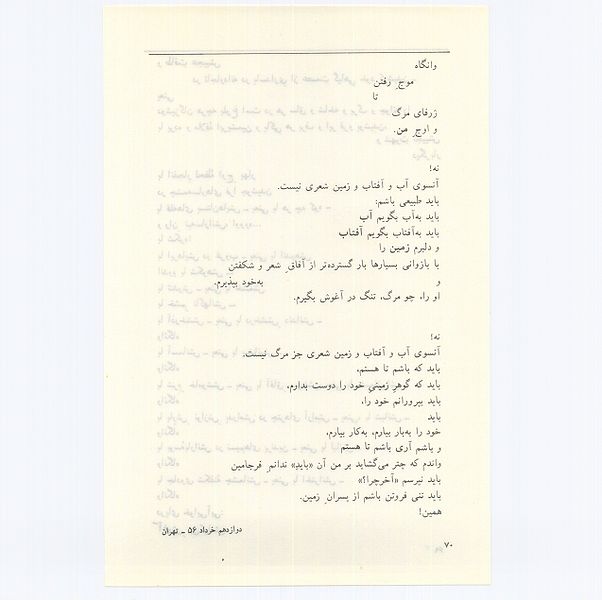 وانگاه
موج ِ رفتن
تا
ژرفای مرگ
و اوج ِ من.
نه!
آنسوی آب و آفتاب و زمین شعری نیست.
باید طبیعی باشم:
باید به‌آب بگویم آب
باید به‌آفتاب بگویم آفتاب
و دلیرم زمین را
با بازوانی بسیارها بار گسترده‌تر از آفاق ِ شعر و شکفتن
و به‌خود بپذیرم،
او را، چو مرگ، تنگ در آغوش بگیرم.
نه!
آنسوی آب و آفتاب و زمین شعری جز مرگ نیست:
باید که باشم تا هستم،
باید که گوهر ِ زمینی‌ِ خود را دوست بدارم،
باید بپرورانم خود را،
باید
خود را به‌بار بیارم، به‌کار بیارم،
و باشم آری باشم تا هستم
واندم که چتر می‌گشاید بر من آن «باید» ندانم ِ فرجامین
باید نپرسم «آخرچرا؟»
باید تنی فروتن باشم از پسران ِ زمین.
همین!
دوازدهم خرداد ۵۶ ـ تهران
۷۰